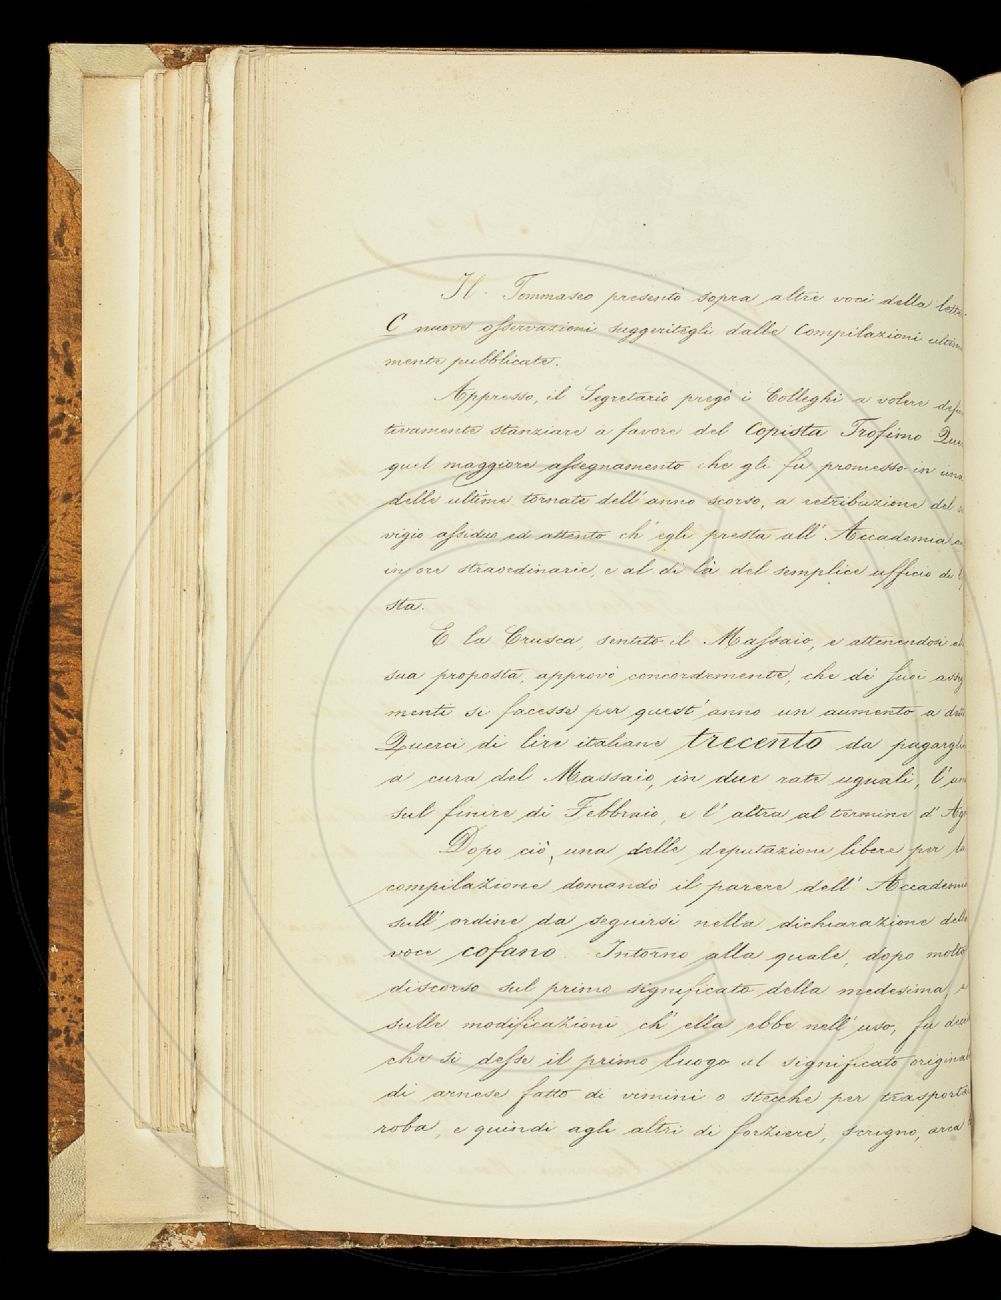 Il Tommaseo presentò sopra altre voci della lette-
C nuove osservazioni suggeritegli dalle Compilazioni
mente pubblicate.
Appresso, il Segretario pregò i Colleghi a volere
tivamente stanziare a favore del Copista Trofimo
quel maggiore assegnamento che gli fu promesso in una
delle ultime tornate dell'anno scorso, a retribuzione del
vigio assiduo ed attento ch'egli presta all'Accademia
in ore straordinarie, e al di là del semplice ufficio di
sta.
E la Crusca, sentito il Massaio, e attenendosi
sua proposta, approvò concordemente, che di suoi
menti si facesse per quest'anno un aumento a
Querci di lire italiane trecento da
a cura del Massaio, in due rate uguali, l'
sul finire di Febbraio, e l'altra al termine d'
Dopo ciò, una delle deputazioni libere per la
compilazione domandò il parere dell'
sull'ordine da seguirsi nella dichiarazione della
voce cofano. Intorno alla quale, dopo molto
discorso sul primo significato della medesima, e
sulle modificazioni ch'ella ebbe nell'uso, fu
che si desse il primo luogo al significato
di arnese fatto di vimini o stecche per
roba, e quindi agli altri di forziere, scrigno, arca